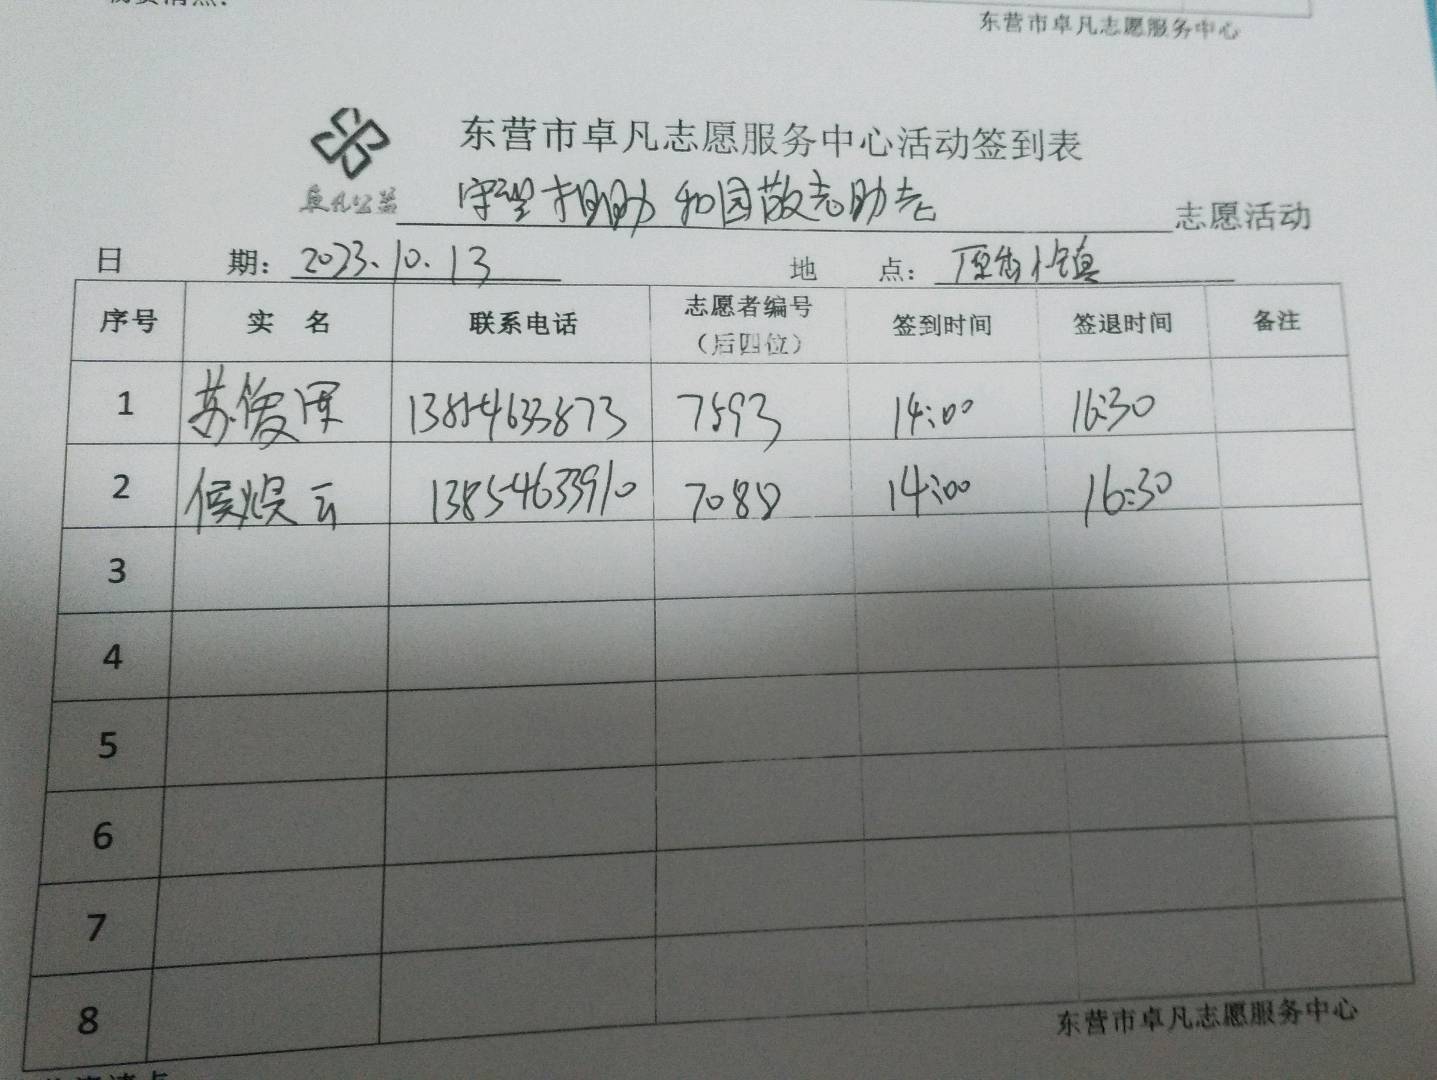 东营市卓凡志愿服务中心
东营市卓凡志愿服务中心活动签到表
卓凡公益 守望相助 和园敬老助老 志愿活动
日 期： 2023.10.13 地 点：
序号 实 名 联系电话 志愿者编号（后四位） 签到时间 签退时间 备注
1 苏俊 13854633873 7593 14:00 16:30
2 侯 云 13854633910 7088 14:00 16:30
3
4
5
6
7
8
东营市卓凡志愿服务中心